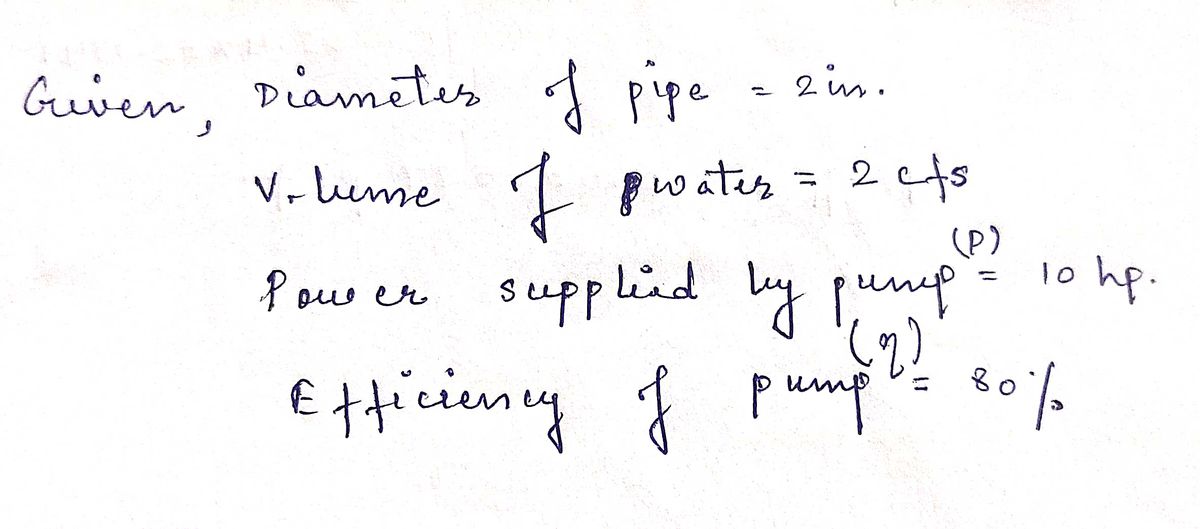 Given, Diameter of pipe = 2 in.
Volume of water = 2 cfs
Power supplied by pump (P) = 10 hp.
Efficiency of pump (η) = 80%